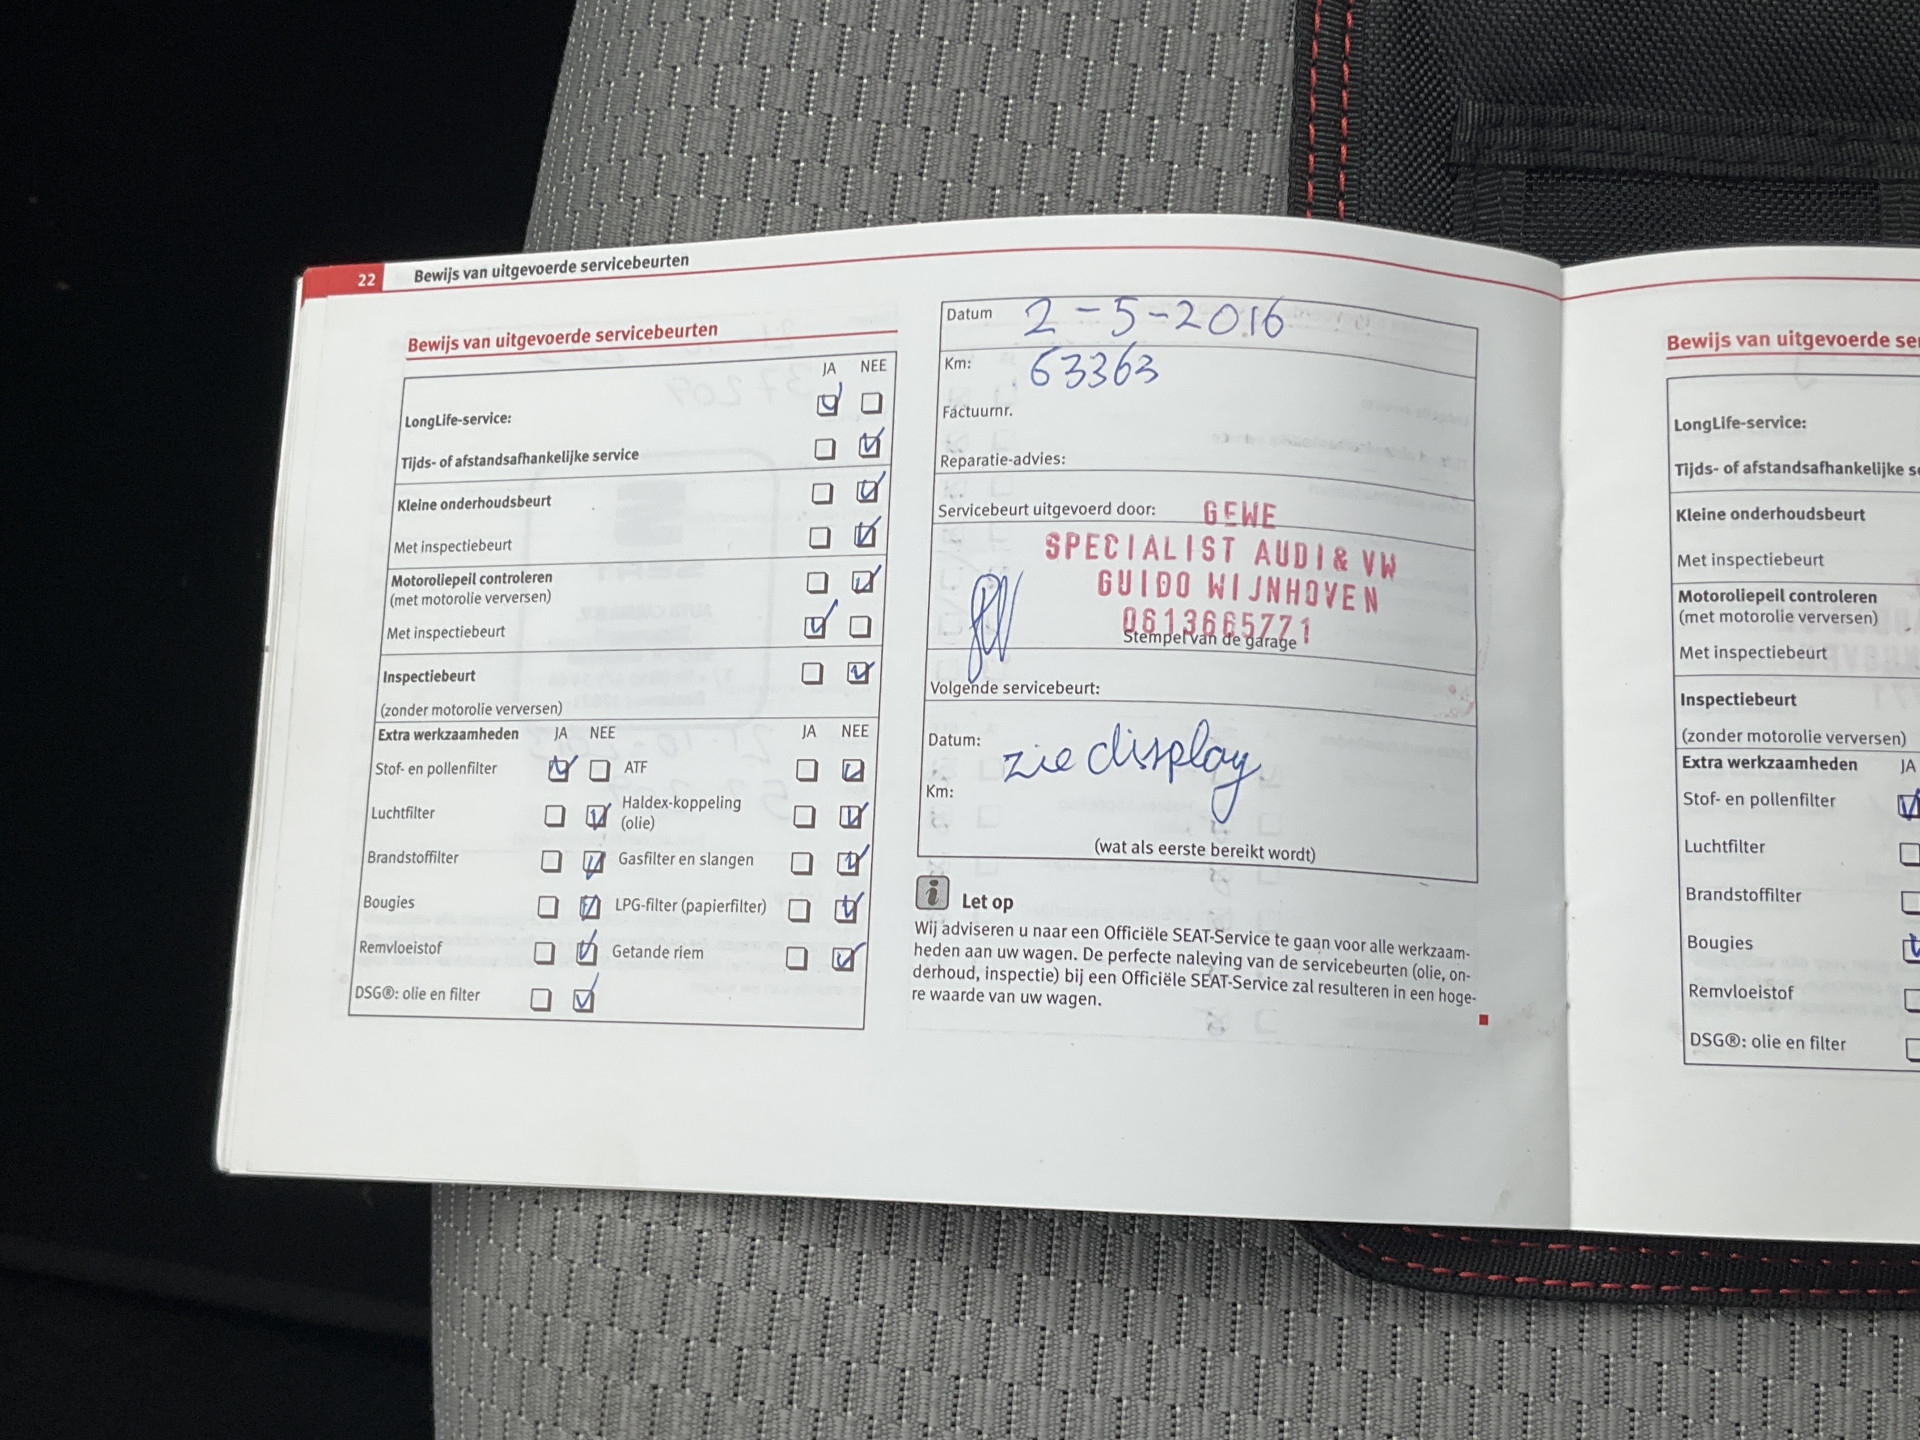 22 Bewijs van uitgevoerde servicebeurten
Bewijs van uitgevoerde servicebeurten
JA NEE
LongLife-service:
Tijds- of afstandsafhankelijke service
Kleine onderhoudsbeurt
Met inspectiebeurt
Motoroliepeil controleren
(met motorolie verversen)
Met inspectiebeurt
Inspectiebeurt
(zonder motorolie verversen)
Extra werkzaamheden JA NEE JA NEE
Stof- en pollenfilter ATF
Luchtfilter Haldex-koppeling
(olie)
Brandstoffilter Gasfilter en slangen
Bougies LPG-filter (papierfilter)
Remvloeistof Getande riem
DSG®: olie en filter
Datum 2-5-2016
Km: 63363
Factuurnr.
Reparatie-advies:
Servicebeurt uitgevoerd door:
GEWE
SPECIALIST AUDI & VW
GUIDO WIJNHOVEN
0613665771
Stempel van de garage
Volgende servicebeurt:
Datum: zie display
Km:
(wat als eerste bereikt wordt)
Let op
Wij adviseren u naar een Officiële SEAT-Service te gaan voor alle werkzaam-
heden aan uw wagen. De perfecte naleving van de servicebeurten (olie, on-
derhoud, inspectie) bij een Officiële SEAT-Service zal resulteren in een hoge-
re waarde van uw wagen.
Bewijs van uitgevoerde se
LongLife-service:
Tijds- of afstandsafhankelijke s
Kleine onderhoudsbeurt
Met inspectiebeurt
Motoroliepeil controleren
(met motorolie verversen)
Met inspectiebeurt
Inspectiebeurt
(zonder motorolie verversen)
Extra werkzaamheden JA
Stof- en pollenfilter
Luchtfilter
Brandstoffilter
Bougies
Remvloeistof
DSG®: olie en filter